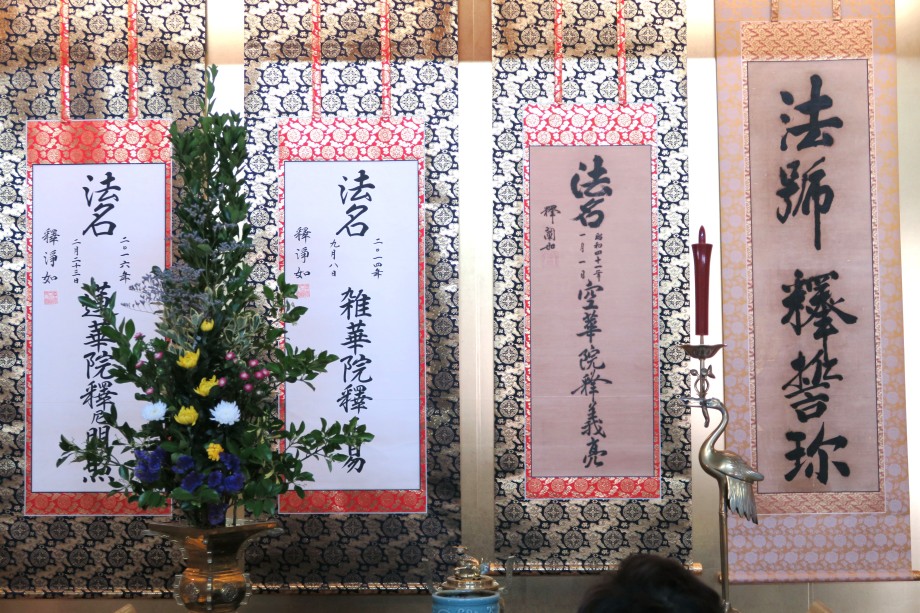 法號 釋哲珎
法名
昭和四十一年
一月一日
空華院释義亮
釋蘭如
法名
二〇一四年
九月八日
雑華院釋易
釋淨如
法名
二〇一六年
二月二十三日
蓮華院釋
釋淨如